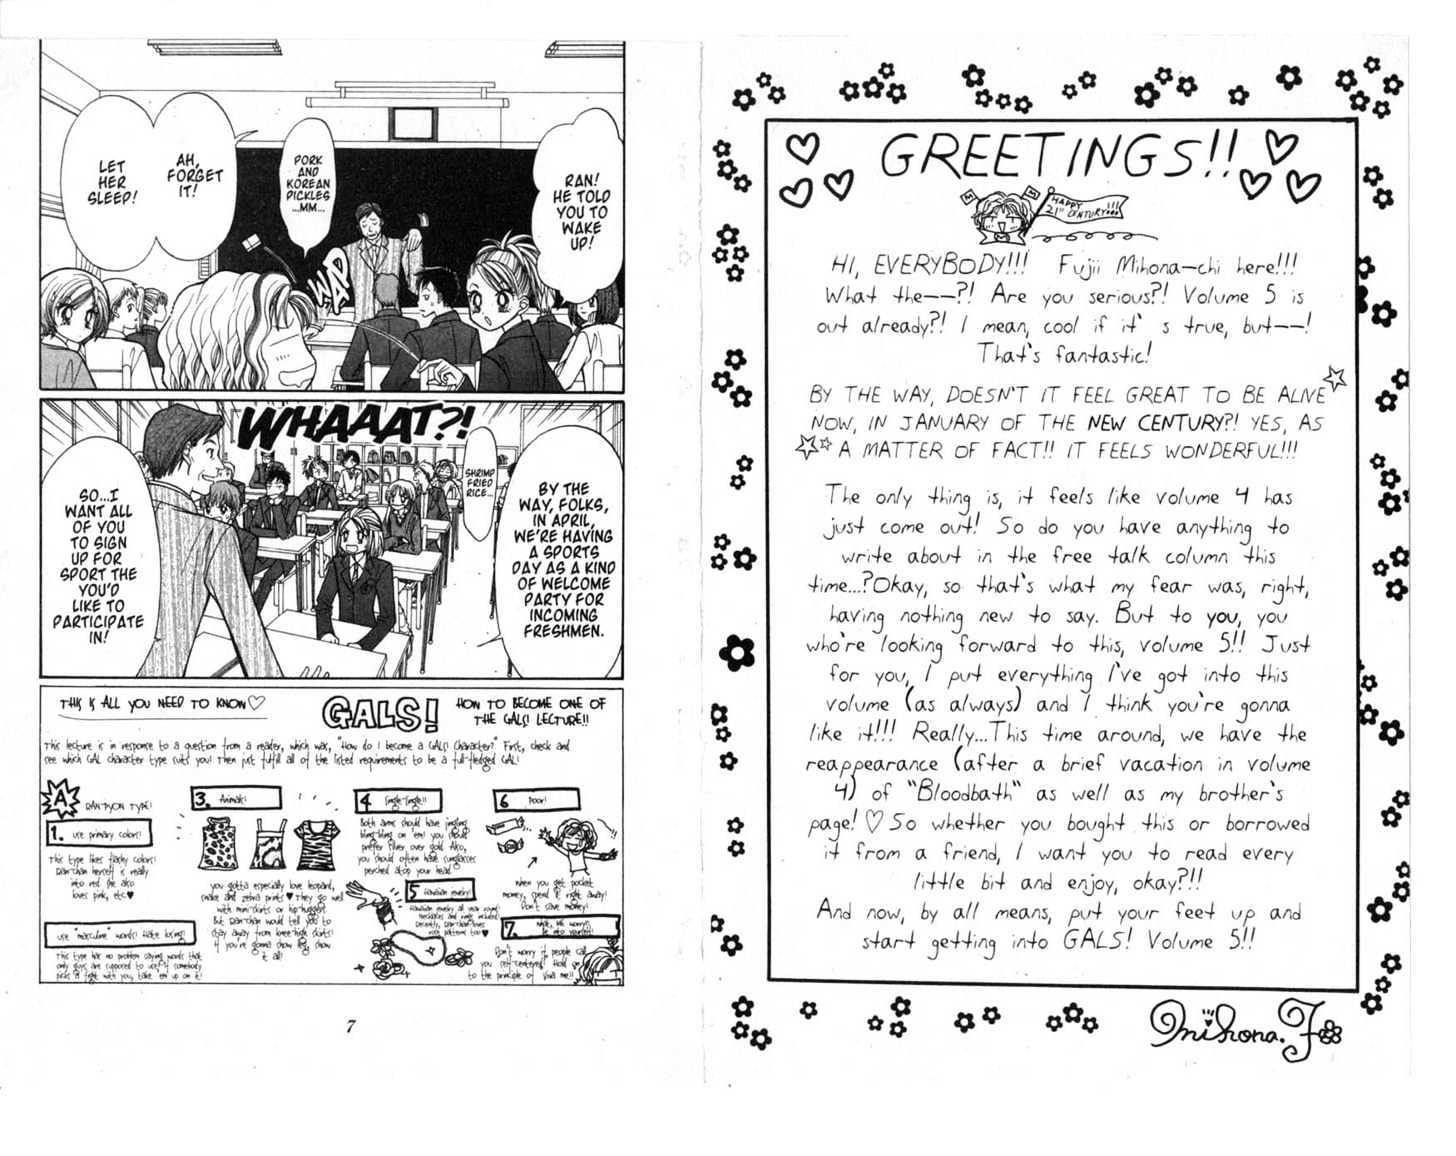 GREETINGS!!
HAPPY
21ST CENTURY!!!
HI, EVERYBODY!!! Fujii Mihona-chi here!!!
What the--?! Are you serious?! Volume 5 is
out already?! I mean, cool if it's true, but--!
That's fantastic!
BY THE WAY, DOESN'T IT FEEL GREAT TO BE ALIVE
NOW, IN JANUARY OF THE NEW CENTURY?! YES, AS
A MATTER OF FACT!! IT FEELS WONDERFUL!!!
The only thing is, it feels like volume 4 has
just come out! So do you have anything to
write about in the free talk column this
time...?Okay, so that's what my fear was, right,
having nothing new to say. But to you, you
who're looking forward to this, volume 5!! Just
for you, I put everything I've got into this
volume (as always) and I think you're gonna
like it!!! Really...This time around, we have the
reappearance (after a brief vacation in volume
4) of "Bloodbath" as well as my brother's
page! ♡ So whether you bought this or borrowed
it from a friend, I want you to read every
little bit and enjoy, okay?!!
And now, by all means, put your feet up and
start getting into GALS! Volume 5!!
Mihona.F
RAN!
HE TOLD
YOU TO
WAKE
UP!
PORK
AND
KOREAN
PICKLES
...MM...
WAP
AH,
FORGET
IT!
LET
HER
SLEEP!
BY THE
WAY, FOLKS,
IN APRIL,
WE'RE HAVING
A SPORTS
DAY AS A KIND
OF WELCOME
PARTY FOR
INCOMING
FRESHMEN.
SHRIMP
FRIED
RICE...
WHAAAT?!
SO...I
WANT ALL
OF YOU
TO SIGN
UP FOR
SPORT THE
YOU'D
LIKE TO
PARTICIPATE
IN!
THIS IS ALL YOU NEED TO KNOW♡
GALS!
HOW TO BECOME ONE OF
THE GALS! LECTURE!!
This lecture is in response to a question from a reader, which was, "How do I become a GALS! character?" First, check and
see which GAL character type suits you! Then just fulfill all of the listed requirements to be a full-fledged GAL!
A RAN-TYON TYPE!
1. use primary colors!
This type likes flashy colors!
Ran-chan herself is really
into red. She also
loves pink, etc.♥
use "masculine" words! Hate losing!
This type has no problem saying words that
only guys are supposed to use! If somebody
picks a fight with you, take 'em up on it!
3. Animals!
you gotta especially love leopard,
snake and zebra prints ♥ They go well
with mini-skirts or hip-huggers!
But Ran-chan would tell you to
stay away from knee-high skirts!
If you're gonna show leg, show
it all!
4 Jingle-jingle!!
Both arms should have jingling
bling-bling on 'em! you should
prefer silver over gold. Also,
you should often have sunglasses
perched atop your head.
5 Hawaiian jewelry!
Hawaiian jewelry all year round!
Necklaces and rings included!
Recently, Ran-chan loves
6 Poor!
when you get pocket
money, spend it right away!
Don't save money!
7. what, me worry?!
Be into yourself!
Don't worry if people call
you self-centered! Hold on
to the principle of "Viva me!!"
7